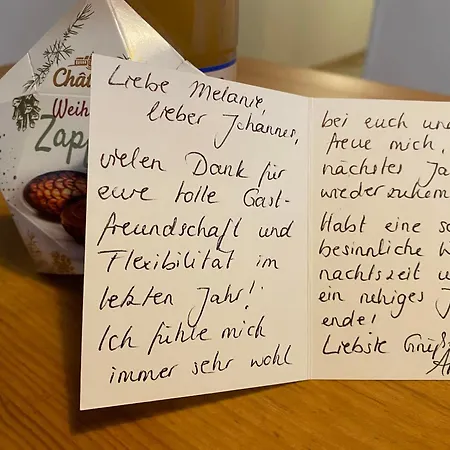 Liebe Melanie,
lieber Johannes,
vielen Dank für
eure tolle Gast-
freundschaft und
Flexibilität im
letzten Jahr!
Ich fühle mich
immer sehr wohl
bei euch und
freue mich,
nächstes Ja
wiederzukom
Habt eine s
besinnliche W
nachtszeit u
ein ruhiges J
ende!
Liebste Grüß
Chât
Weih
Zap